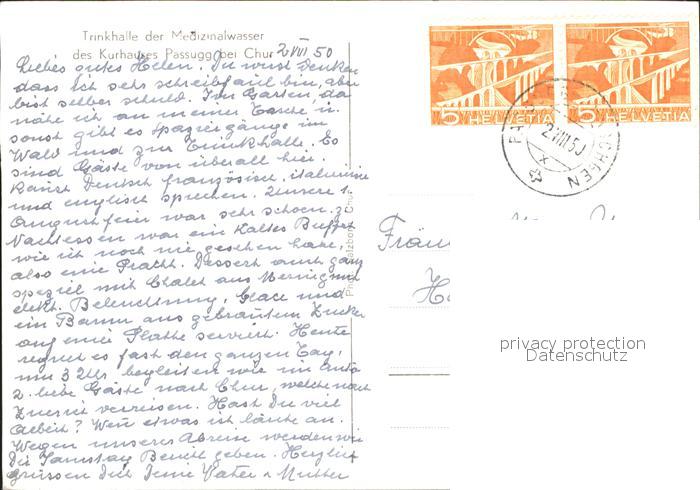 Trinkhalle der Medizinalwasser
des Kurhauses Passugg bei Chur 2 VIII 50
Liebes gutes Helen. Du wirst denken
dass ich sehr schreibfaul bin, aber
bist selber schuld. Im Garten, da
nähe ich an meiner Tasche u.
sonst gibt es Spaziergänge im
Wald und zur Trinkhalle. Es
sind Gäste von überall hier.
Kanst Deutsch französisch, italienisch
und englisch sprechen. Unsere 1.
August feier war sehr schoen. z.
Nachtessen war ein Kaltes Buffet
wie ich noch nie gesehen habe,
also eine Pracht. Dessert auch ganz
speziel mit Chalet aus Mering mit
elektr. Beleuchtung, Glace und
ein Baum aus gebranntem Zucker
auf eine Platte serviert. Heute
regnet es fast den ganzen Tag,
um 3 Uhr begleiten wir im Auto
2 liebe Gäste nach Chur, welche nach
Zuerich verreisen. Hast Du viel
Arbeit? Wen etwas ist läute an.
Wegen unseres Abreise werden wir
Die Samstag Bericht geben. Herzlich
grüssen Dich Deine Vater u Mutter
Phot. Salzborn, Chur
5 HELVETIA
5 HELVETIA
2.VIII.50
X
Fräu
H
privacy protection
Datenschutz